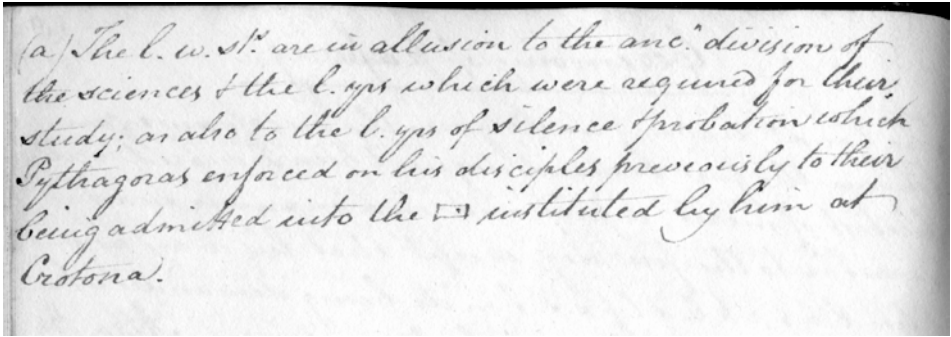 (a) The l. w. sts. are in allusion to the anct. division of
the sciences & the l. yrs which were required for their
study; as also to the l. yrs of silence & probation which
Pythagoras enforced on his disciples previously to their
being admitted into the instituted by him at
Crotona.